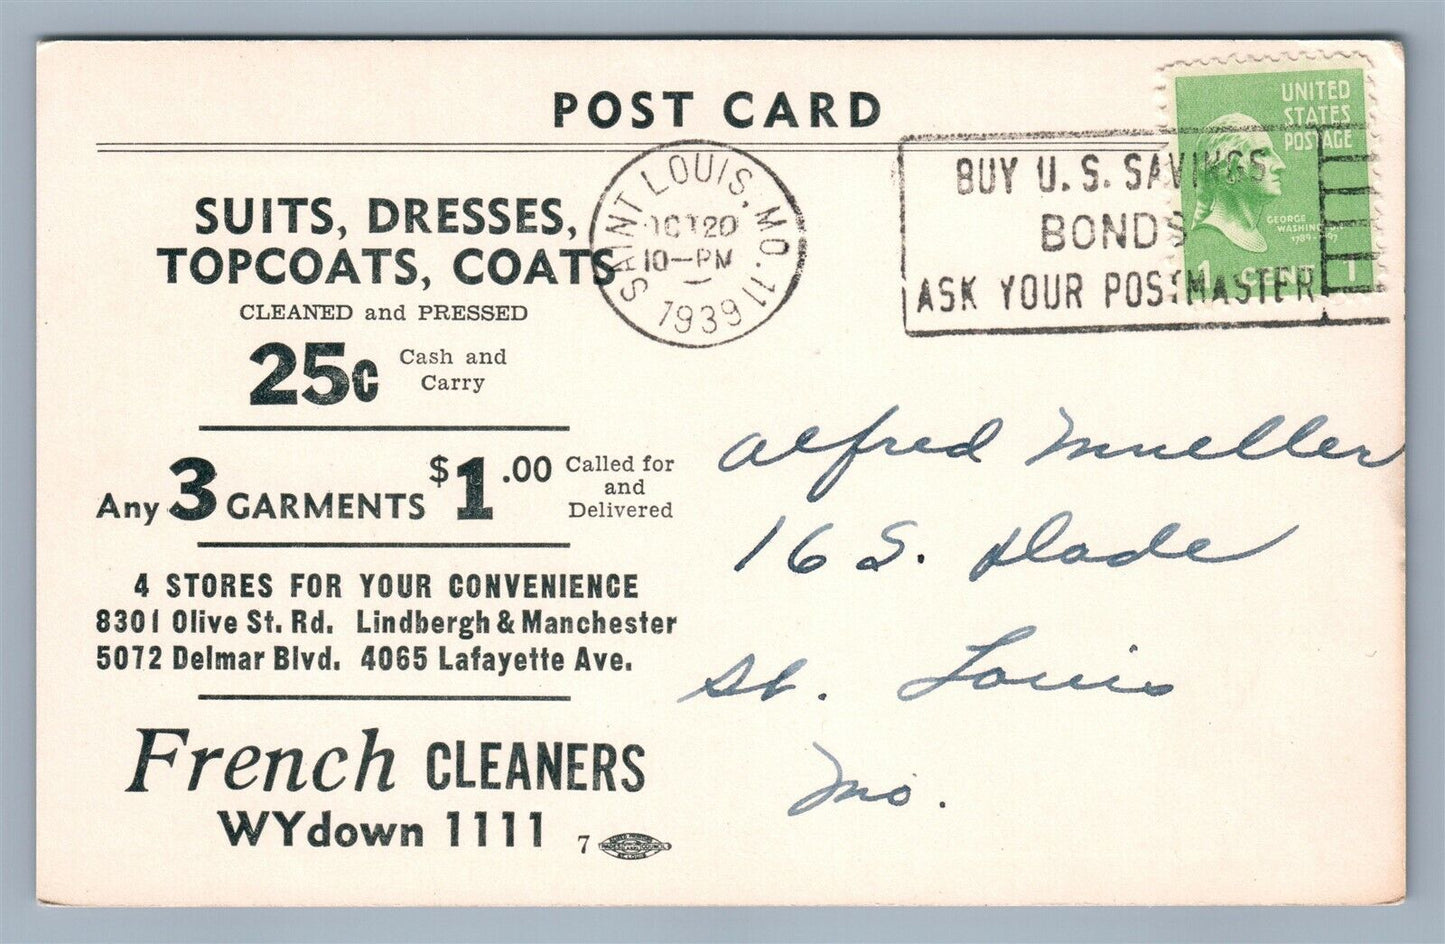 POST CARD
SUITS, DRESSES,
TOPCOATS, COATS
CLEANED and PRESSED
25c Cash and
Carry
Any 3 GARMENTS $1.00 Called for
and
Delivered
4 STORES FOR YOUR CONVENIENCE
8301 Olive St. Rd. Lindbergh & Manchester
5072 Delmar Blvd. 4065 Lafayette Ave.
French CLEANERS
WYdown 1111 7
SAINT LOUIS, MO. 11
OCT 20
10-PM
1939
BUY U.S. SAVINGS
BONDS
ASK YOUR POSTMASTER
UNITED
STATES
POSTAGE
GEORGE
WASHINGTON
1789-97
1 CENT 1
Alfred Mueller
16 S. Dade
St. Louis
Mo.